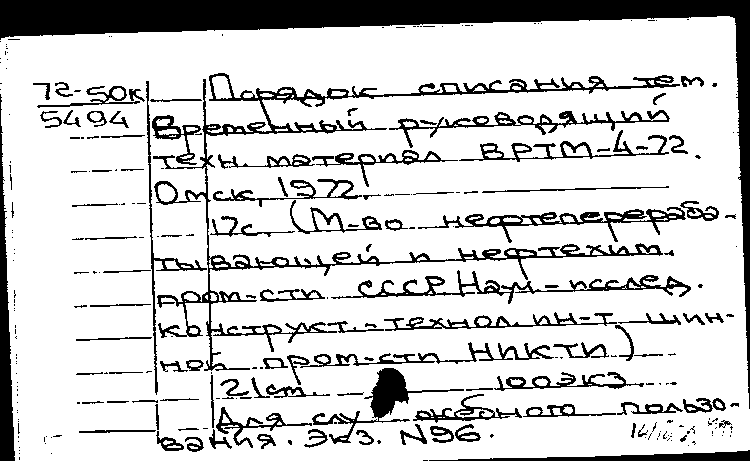 72-50к Порядок списания тем.
5494 Временный руководящий
техн. материал ВРТМ-4-72.
Омск, 1972.
17с. (М-во нефтеперераба-
тывающей и нефтехим.
пром-сти СССР Науч-исслед.
конструкт.-технол. ин-т шин-
ной пром-сти НИКТИ)
21см. 100экз.
Для служебного пользо-
вания. Экз. N96.